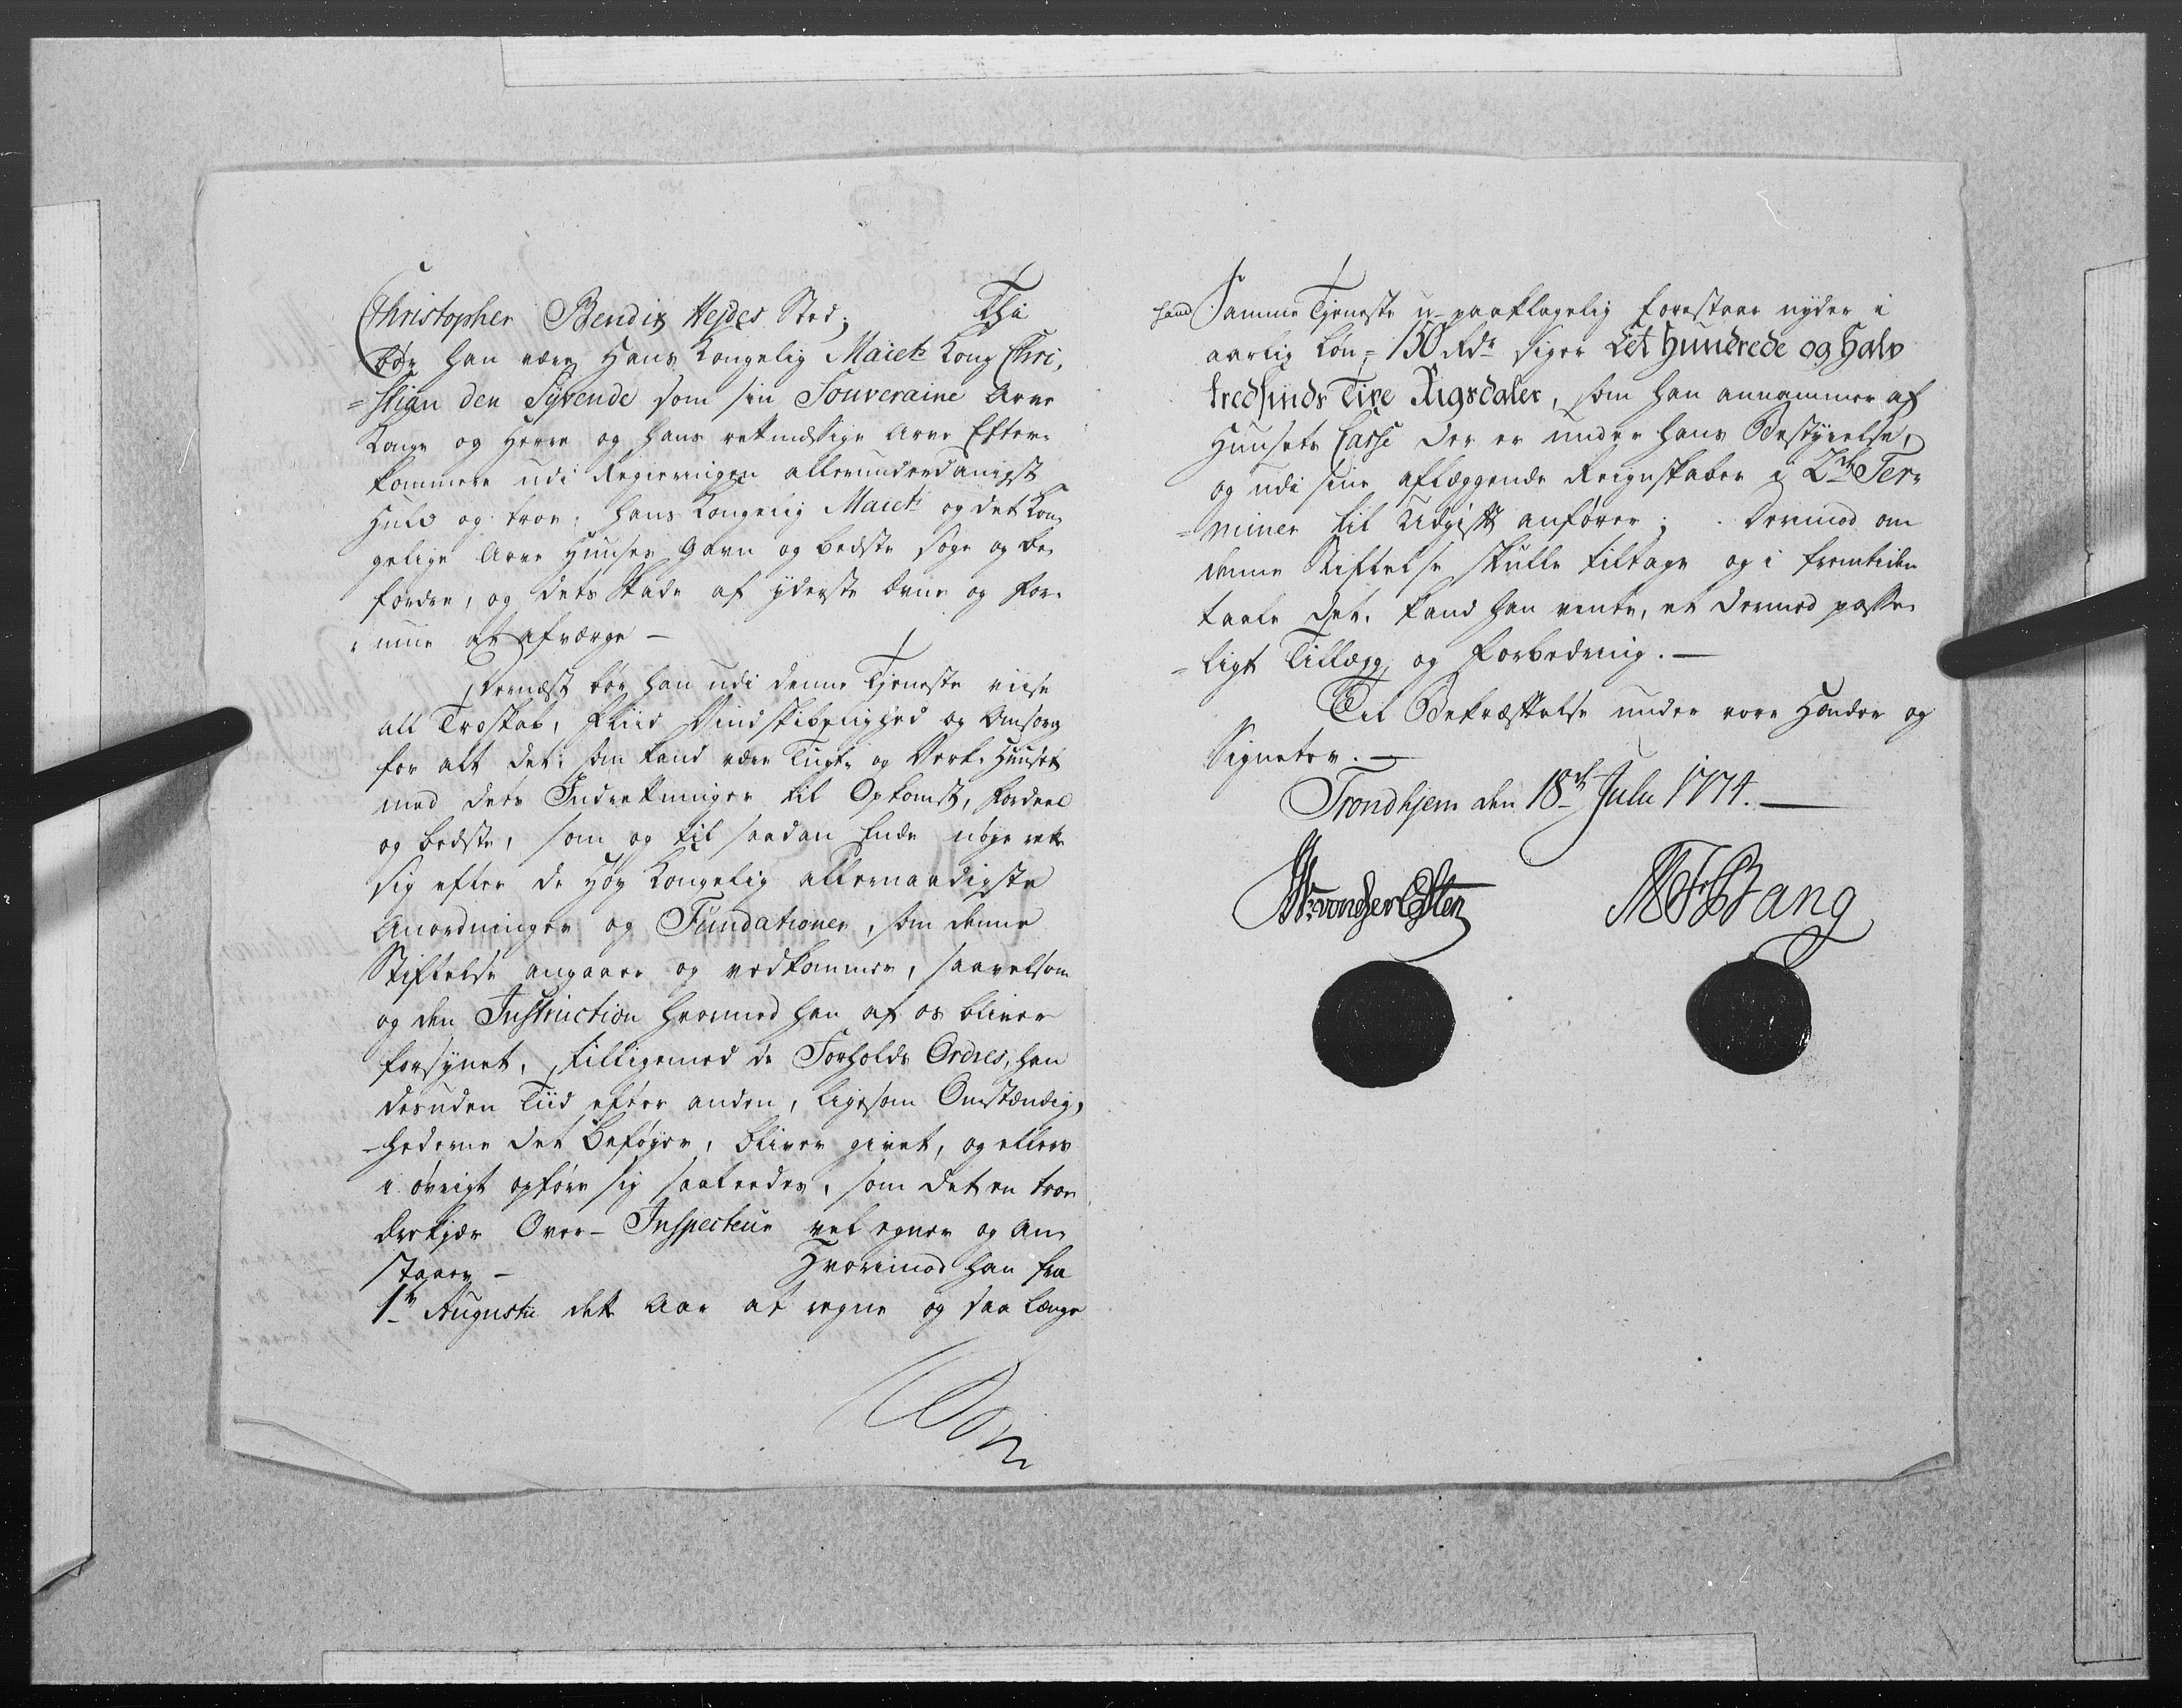 Christopher Bendix Hejdes Sted; Thi
bør han være Hans Kongelig Maiets Kong Chri,
=stian den Syvende som sin Souveraine Arve
Konge og Herre og hans retmæssige Arve Efter-
kommere udi Regieringen allerunderdanigst
Huld og troe, hans Kongelig Maiets og det Kon-
gelige Arve Huuses Gavn og bedste søge og be-
fordre, og dets Skade af ydersteÆvne og For-
mue at afværge —
Dernæst bør han udi denne Tjeneste viise
all Troskab, Fliid Vindskibelighed og Omsorg
for alt det: som kand være Tugt- og Verk-Huuset
med dets Indretninger til Opkomst, Fordeel
og bedste, som og til saadan Ende nøye rette
sig efter de Høy Kongelig allernaadigste
Anordninger og Fundationer, som denne
Stiftelse angaaer og vedkommer, saavelsom
og den Instruction hvormed han af os bliver
forsynet, tilligemed de Forholds Ordres, han
desuden Tiid efter anden, ligesom Omstændig,
-hederne det Beføyer, bliver givet, og ellers
i øvrigt opføre sig saaledes, som det en troe
Over-Inspecteur vel egner og an-
staaer — Hvorimod han fra
1te Augusti dette Aar at regne og saa længe
hand Samme Tjeneste u-paaklagelig forestaar nyder i
aarlig Løn = 150 Rdr siger Eet Hundrede og Halv
tredsinds Tive Rigsdaler, som han annammer af
Huusets Casse der er under hans Bestyrelse,
og udi sine aflæggende Reignskaber i 2de Ter-
=miner til Udgift anfører; Dermed om
denne Stiftelse skulle tiltage og i fremtiden
taale det. kand han vente, et dermed passe-
=ligt Tillægg og Forbedring. —
Til Bekræftelse under vore Hænder og
Signeter. —
Trondhjem den 18de Julii 1774. —
MFBang